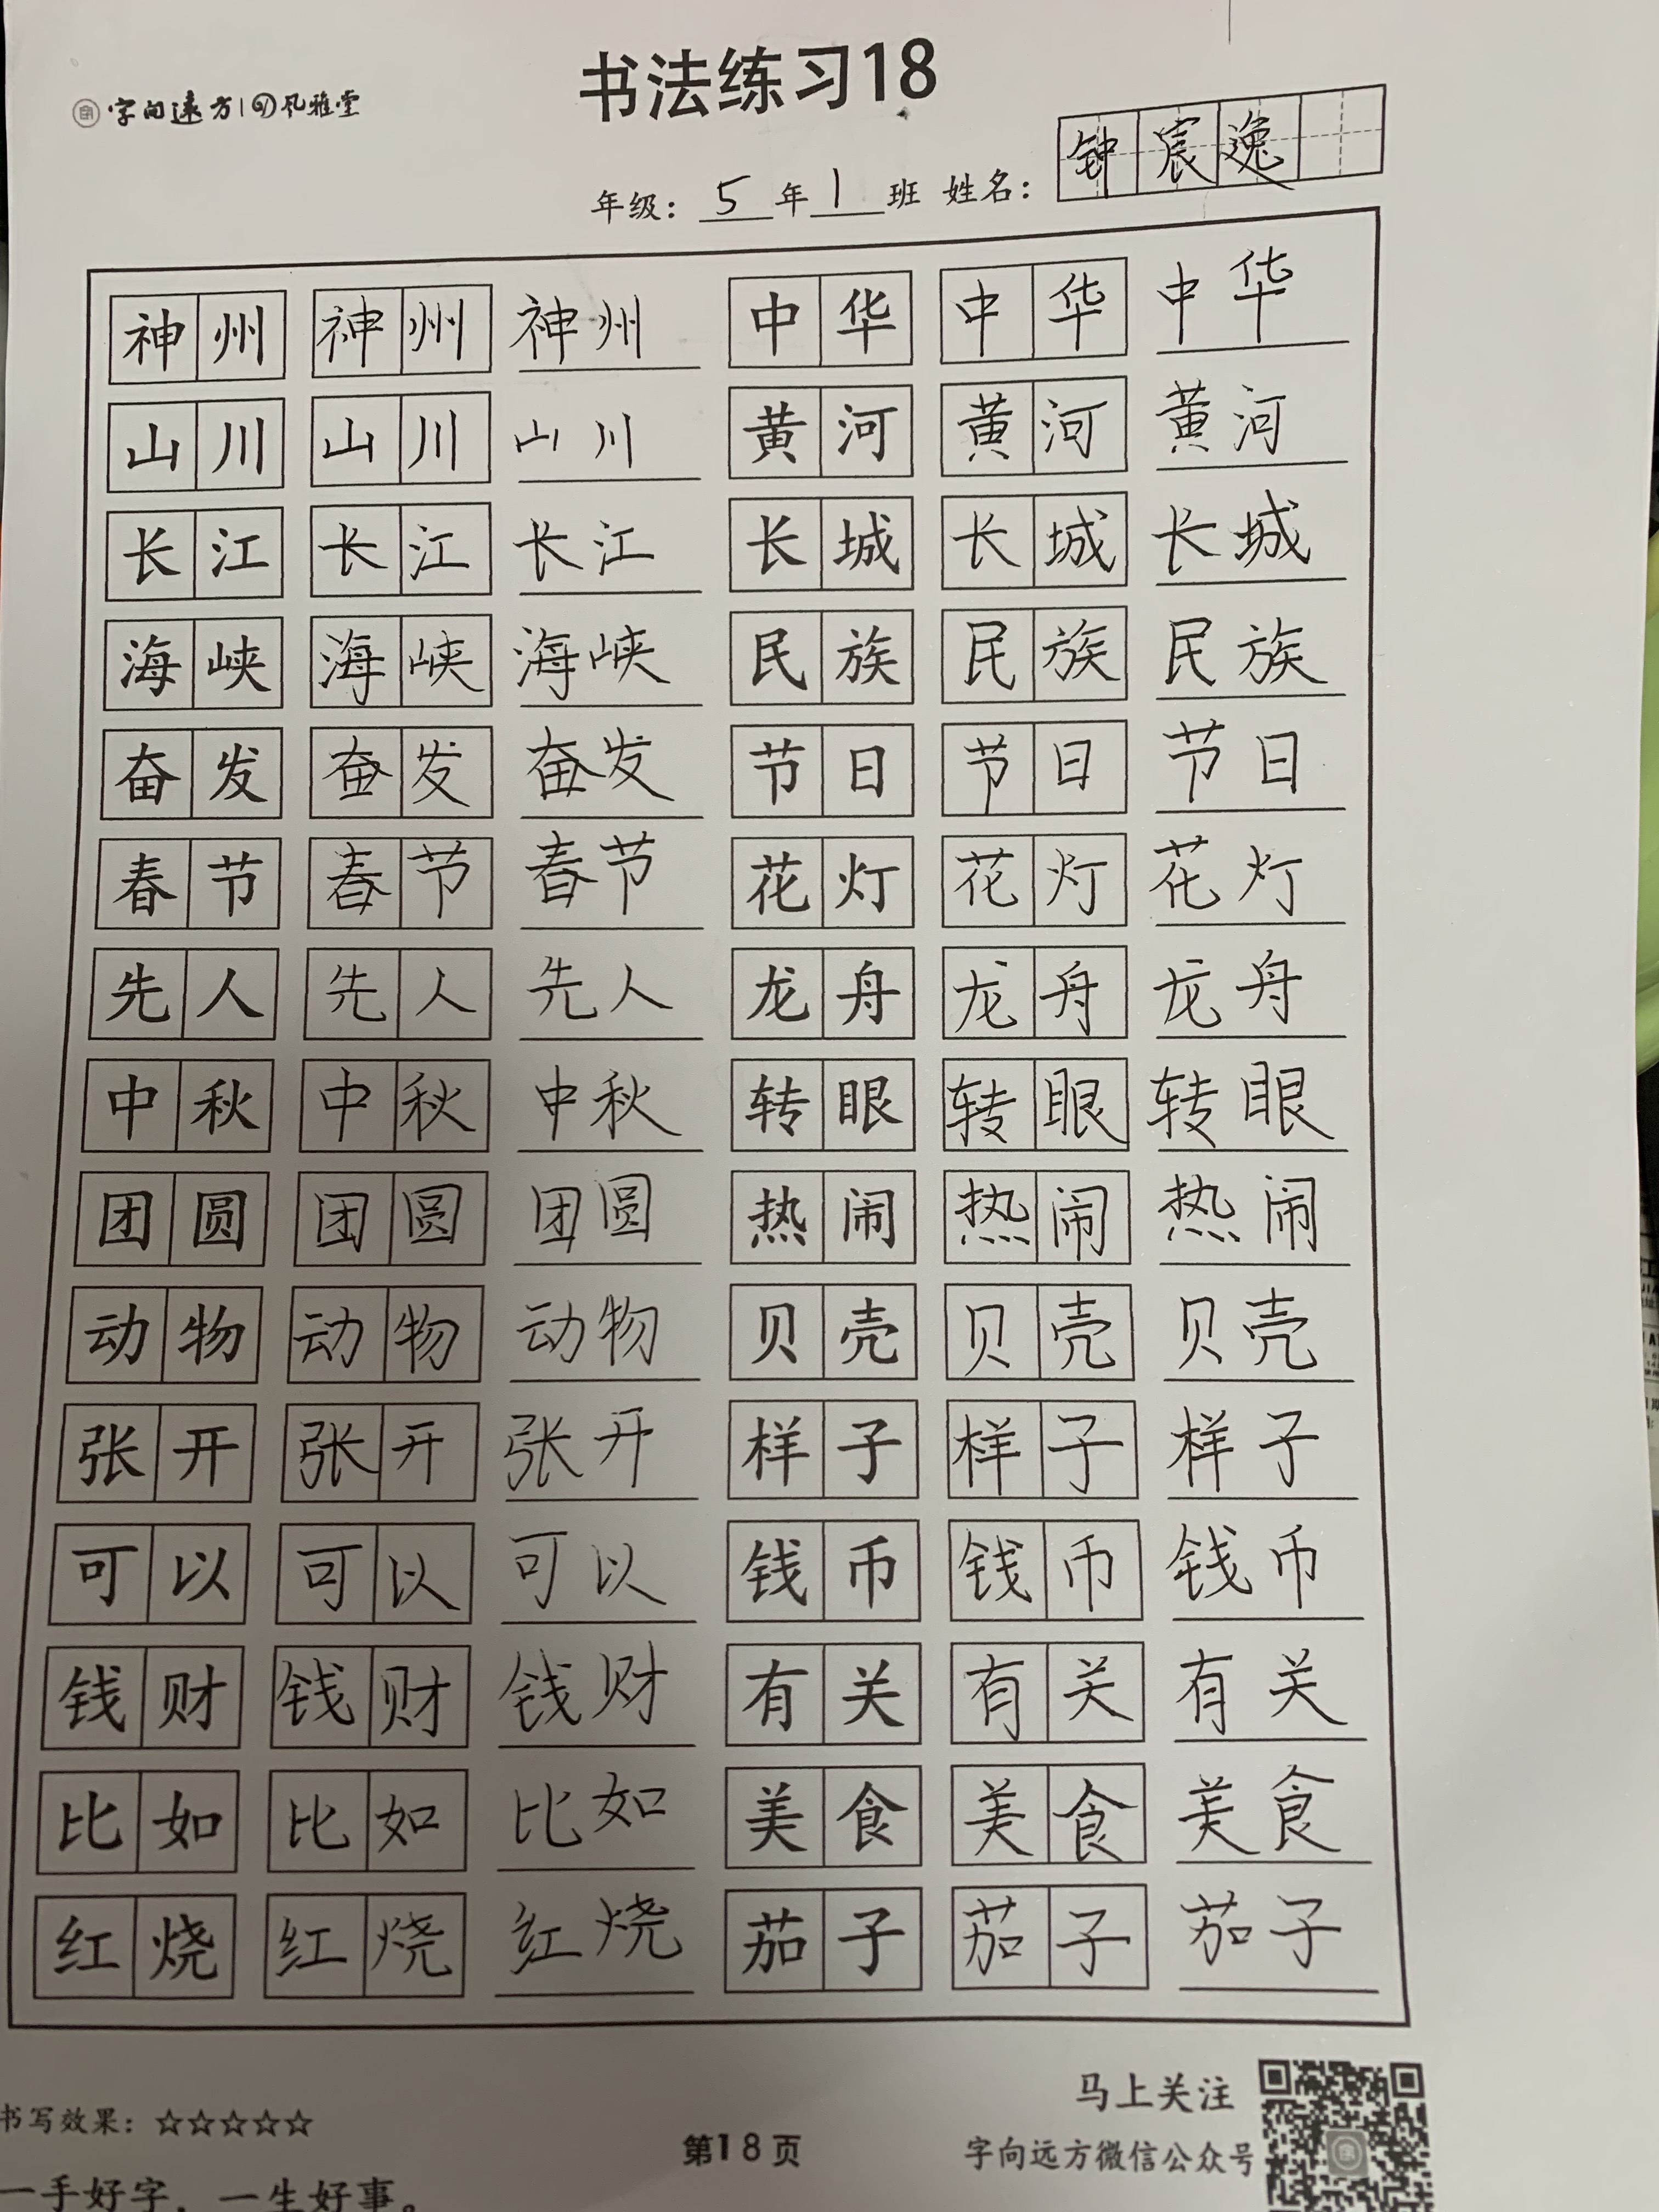 书法练习18
字向远方 风雅堂
年级：5年1班 姓名：钟宸逸
神州 神州 神州 中华 中华 中华
山川 山川 山川 黄河 黄河 黄河
长江 长江 长江 长城 长城 长城
海峡 海峡 海峡 民族 民族 民族
奋发 奋发 奋发 节日 节日 节日
春节 春节 春节 花灯 花灯 花灯
先人 先人 先人 龙舟 龙舟 龙舟
中秋 中秋 中秋 转眼 转眼 转眼
团圆 团圆 团圆 热闹 热闹 热闹
动物 动物 动物 贝壳 贝壳 贝壳
张开 张开 张开 样子 样子 样子
可以 可以 可以 钱币 钱币 钱币
钱财 钱财 钱财 有关 有关 有关
比如 比如 比如 美食 美食 美食
红烧 红烧 红烧 茄子 茄子 茄子
书写效果：☆☆☆☆☆
一手好字，一生好事。
第18页
马上关注
字向远方微信公众号